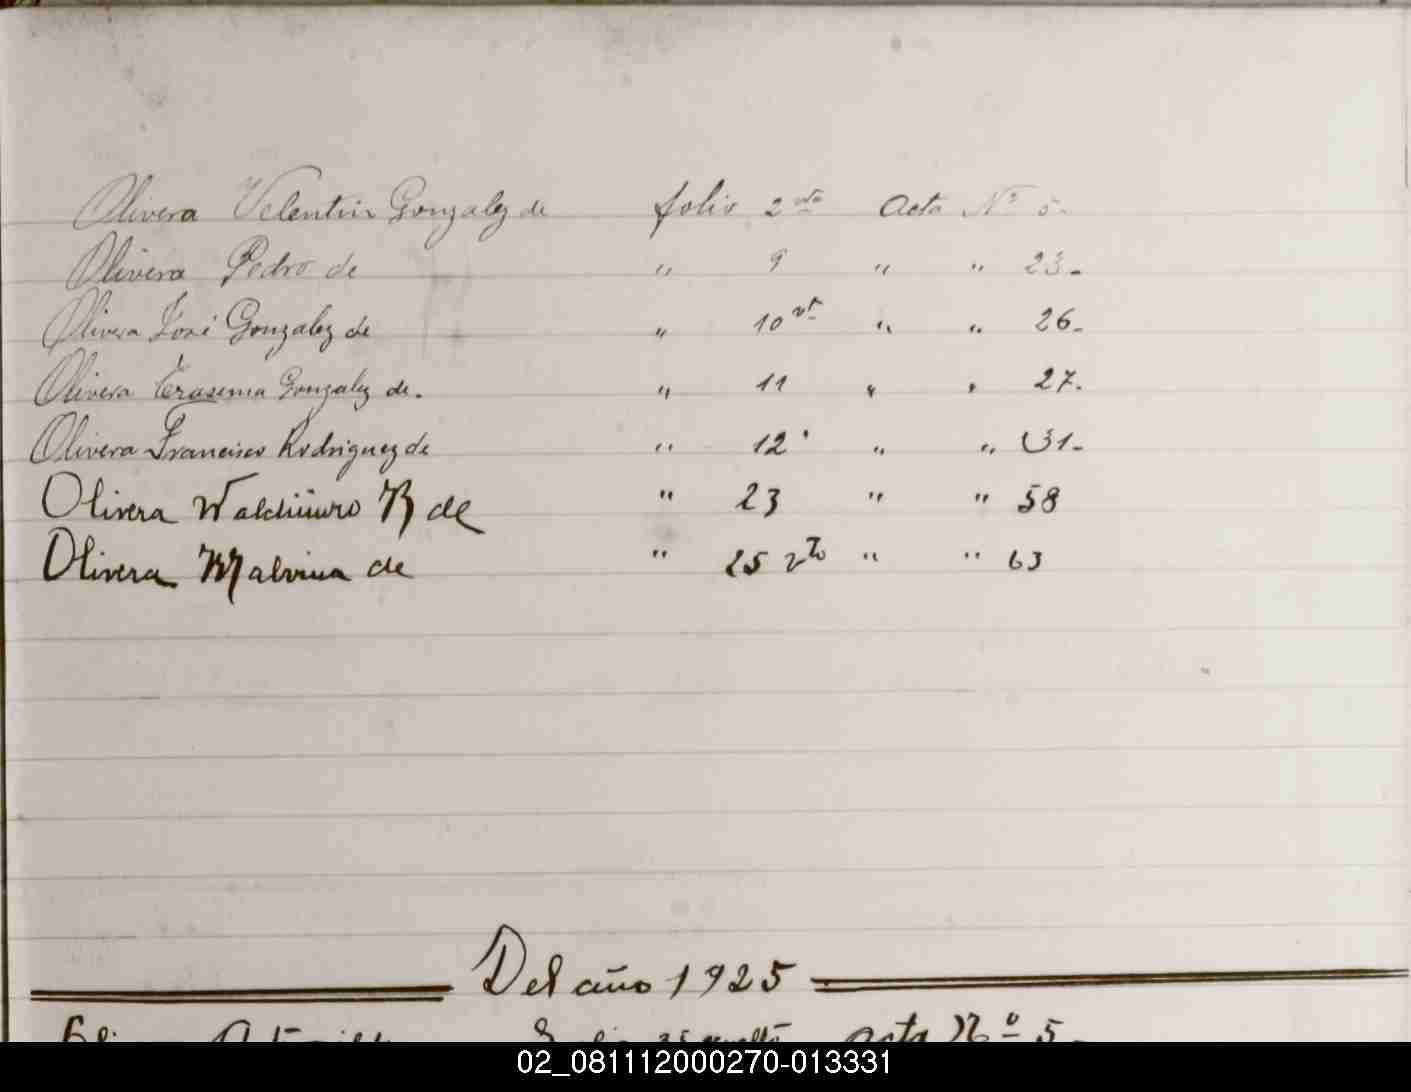 Olivera Velentin Gonzalez de folio 2 vto acta Nº 5-
Olivera Pedro de " 9 " " 23-
Olivera José Gonzalez de " 10 vt " " 26-
Olivera Erasema Gonzalez de. " 11 " " 27.
Olivera Francisco Rodriguez de " 12 " " 31-
Olivera Waldimiro R de " 23 " " 58
Olivera Malvina de " 25 vto " " 63
Del año 1925
acta Nº 5-
02_081112000270-013331